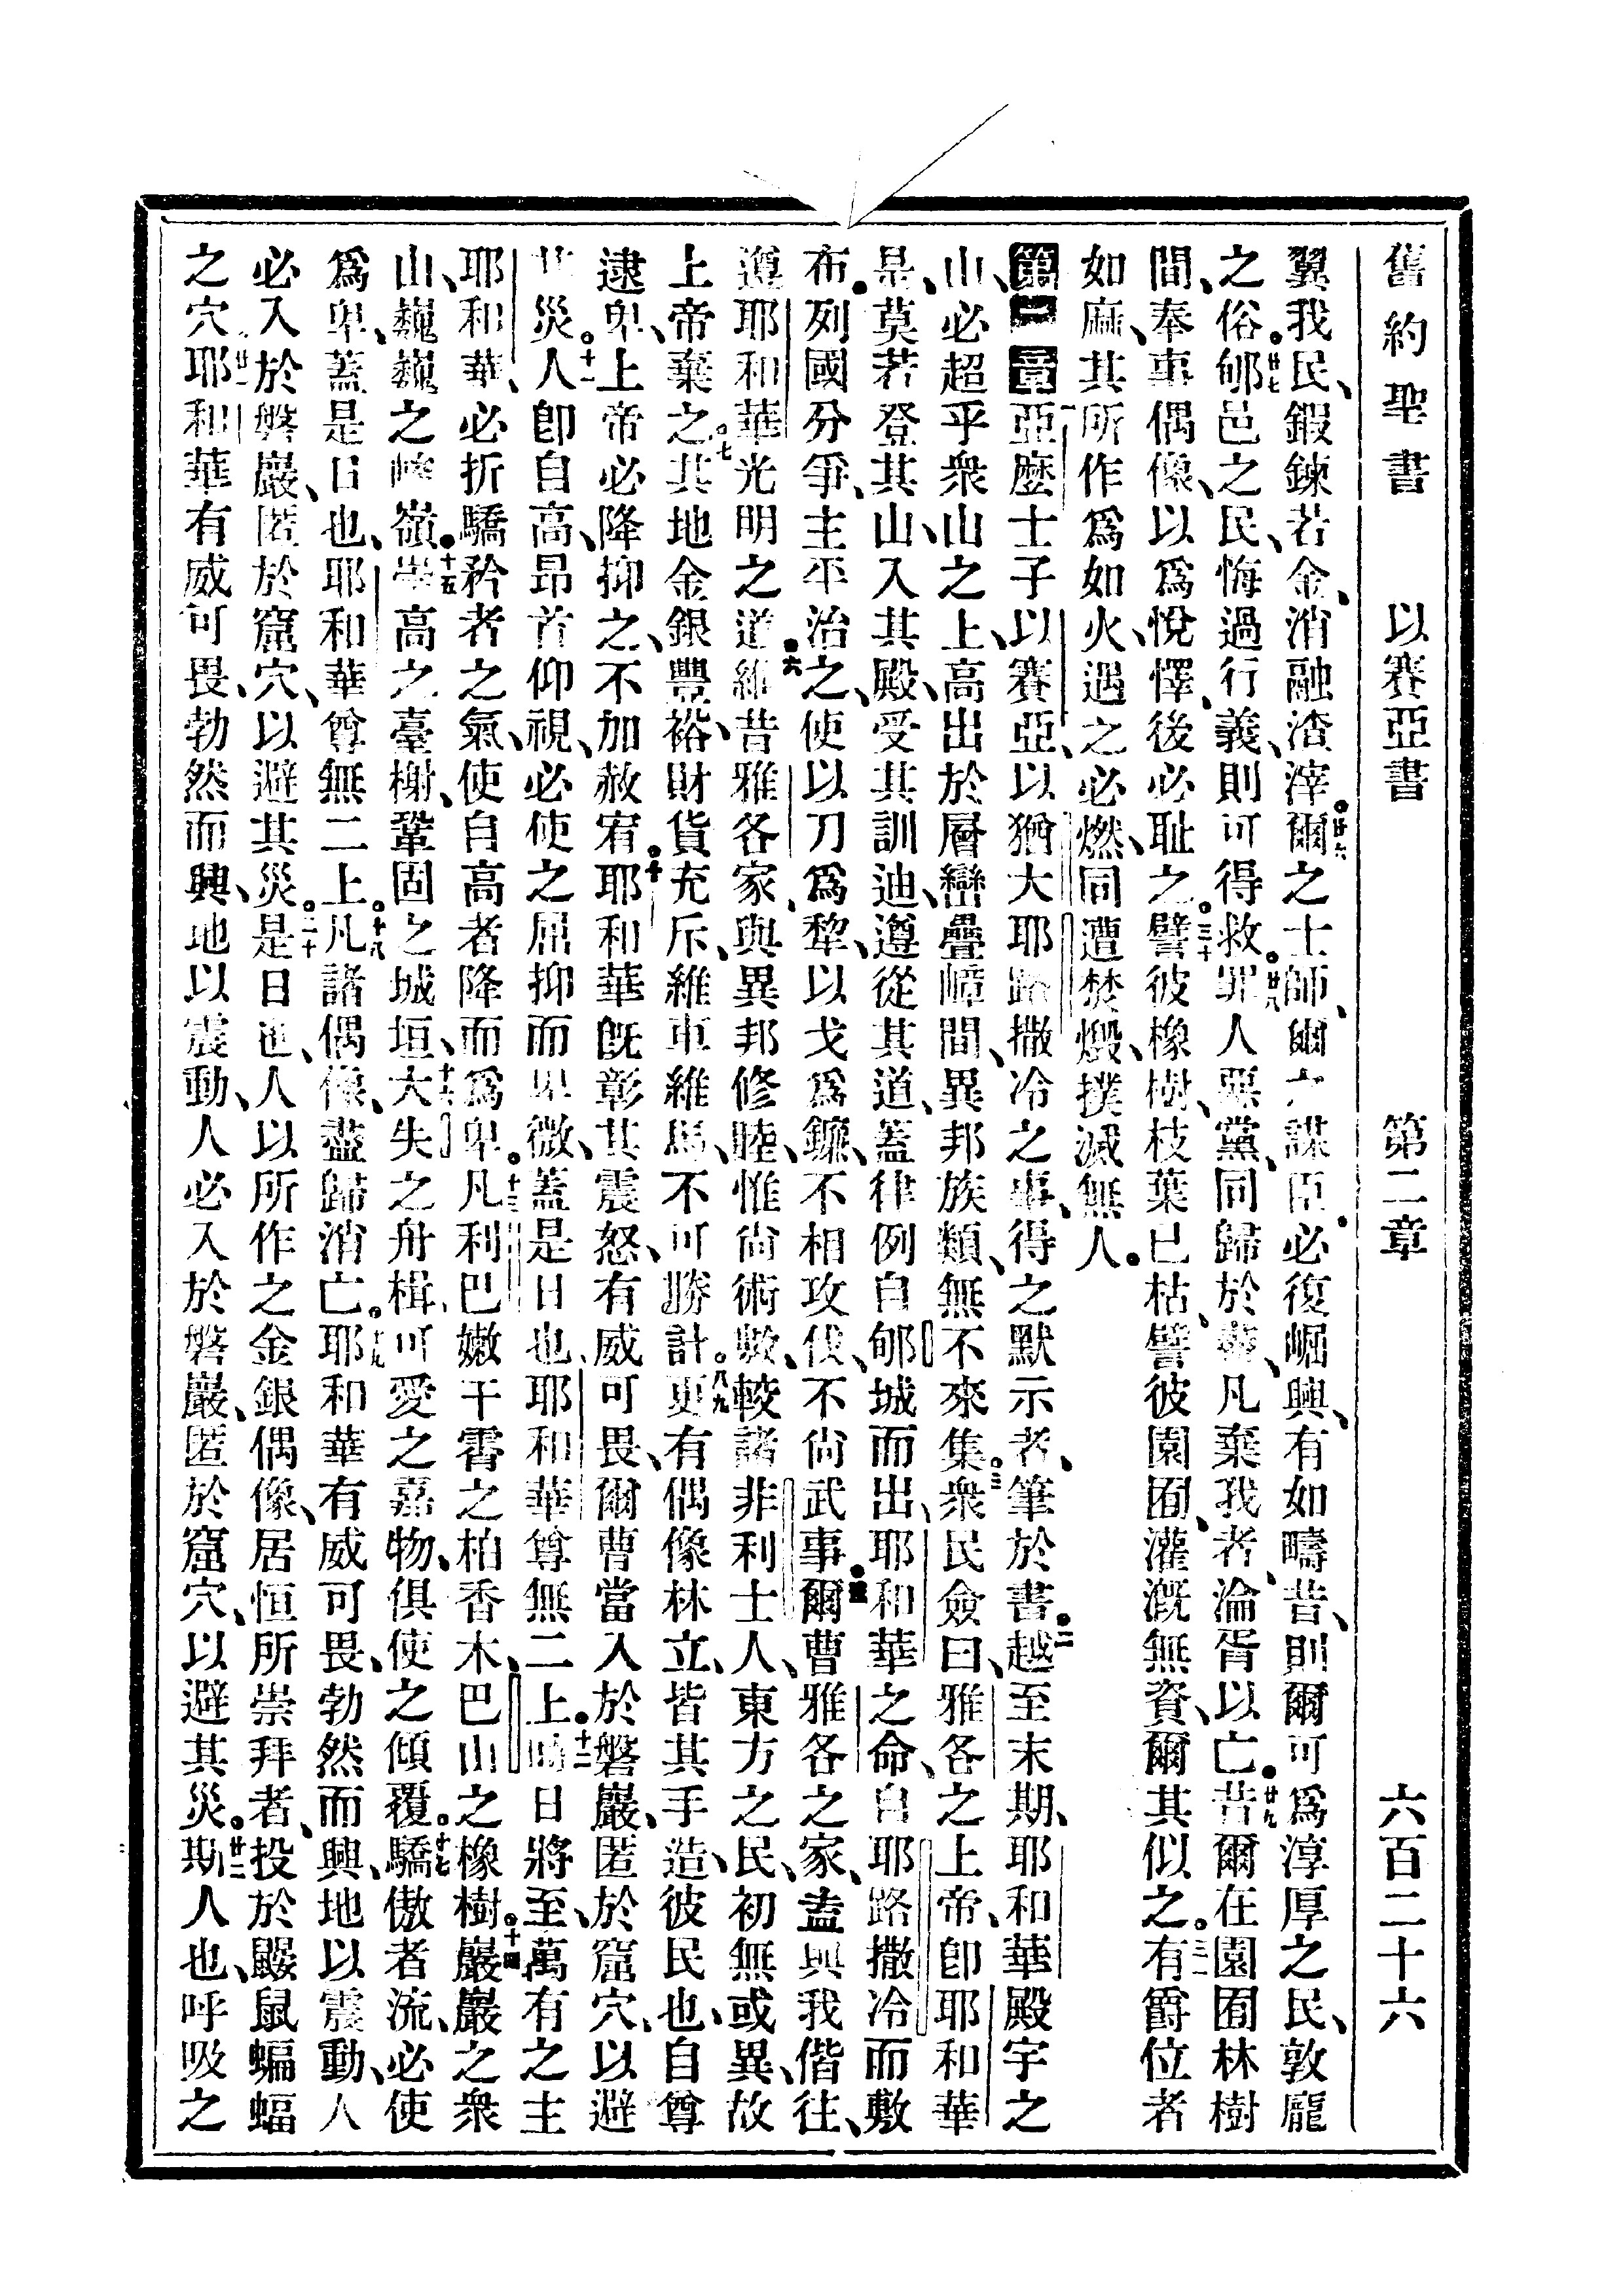 舊約聖書 以賽亞書 第二章 六百二十六
翼我民、鍜鍊若金、消融渣滓。廿六爾之士師、爾之謀臣、必復崛興、有如疇昔、則爾可爲淳厚之民、敦龐
之俗。廿七郇邑之民、悔過行義、則可得救。廿八罪人惡黨、同歸於盡、凡棄我者、淪胥以亡。廿九昔爾在園囿林樹
間、奉事偶像、以爲悅懌、後必耻之。三十譬彼橡樹、枝葉已枯、譬彼園囿、灌溉無資、爾其似之。三一有爵位者
如麻、其所作爲如火、遇之必燃、同遭焚燬、撲滅無人。
第二章 亞麼士子以賽亞、以猶大耶路撒冷之事、得之默示者、筆於書。二越至末期、耶和華殿宇之
山、必超乎衆山之上、高出於層巒疊嶂間、異邦族類、無不來集。三衆民僉曰、雅各之上帝、卽耶和華
是、莫若登其山、入其殿、受其訓迪、遵從其道、蓋律例自郇城而出、耶和華之命、自耶路撒冷而敷
布。列國分爭、主平治之、使以刀爲犂、以戈爲鐮、不相攻伐、不尙武事。五爾曹雅各之家、盍與我偕往、
遵耶和華光明之道。六維昔雅各家、與異邦修睦、惟尙術數、較諸非利士人、東方之民、初無或異、故
上帝棄之。七其地金銀豐裕、財貨充斥、維車維馬、不可勝計。八九更有偶像林立、皆其手造、彼民也、自尊
逮卑、上帝必降抑之、不加赦宥。十耶和華旣彰其震怒、有威可畏、爾曹當入於磐巖、匿於窟穴、以避
其災。十一人卽自高、昂首仰視、必使之屈抑而卑微、蓋是日也、耶和華尊無二上。十二時日將至、萬有之主
耶和華、必折驕矜者之氣、使自高者降而爲卑。十三凡利巴嫩干霄之柏香木、巴山之橡樹。十四巖巖之衆
山、巍巍之峰嶺。十五崇高之臺榭、鞏固之城垣、十六大失之舟楫、可愛之嘉物、俱使之傾覆。十七驕傲者流、必使
爲卑、蓋是日也、耶和華尊無二上。十八凡諸偶像、盡歸消亡。十九耶和華有威可畏、勃然而興、地以震動、人
必入於磐巖、匿於窟穴、以避其災。二十是日也、人以所作之金銀偶像、居恒所崇拜者、投於鼹鼠蝙蝠
之穴。廿一耶和華有威可畏、勃然而興、地以震動、人必入於磐巖、匿於窟穴、以避其災。廿二斯人也、呼吸之